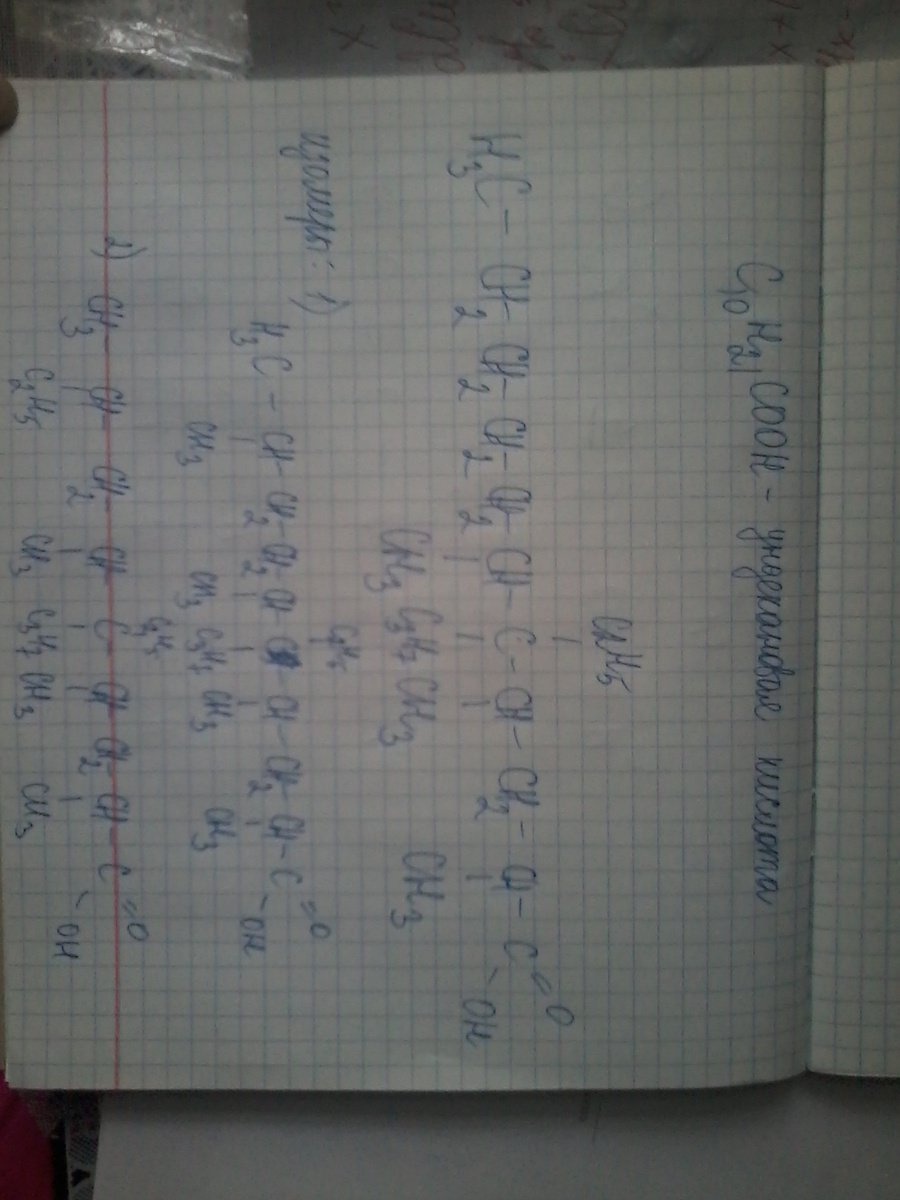 C₁₀H₂₁COOH - ундекановая кислота
C₂H₅
H₃C - CH₂ - CH₂ - CH₂ - CH₂ - CH - C - CH - CH₂ - CH - C = O
- OH
CH₃ C₃H₇ CH₃ CH₃
изомеры: 1)
C₂H₅
H₃C - CH - CH₂ - CH₂ - CH - C - CH - CH₂ - CH - C = O
- OH
CH₃ CH₃ C₃H₇ CH₃ CH₃
C₂H₅
2) CH₃ - CH - CH₂ - CH - C - CH - CH₂ - CH - C = O
- OH
C₂H₅ CH₃ C₃H₇ CH₃ CH₃